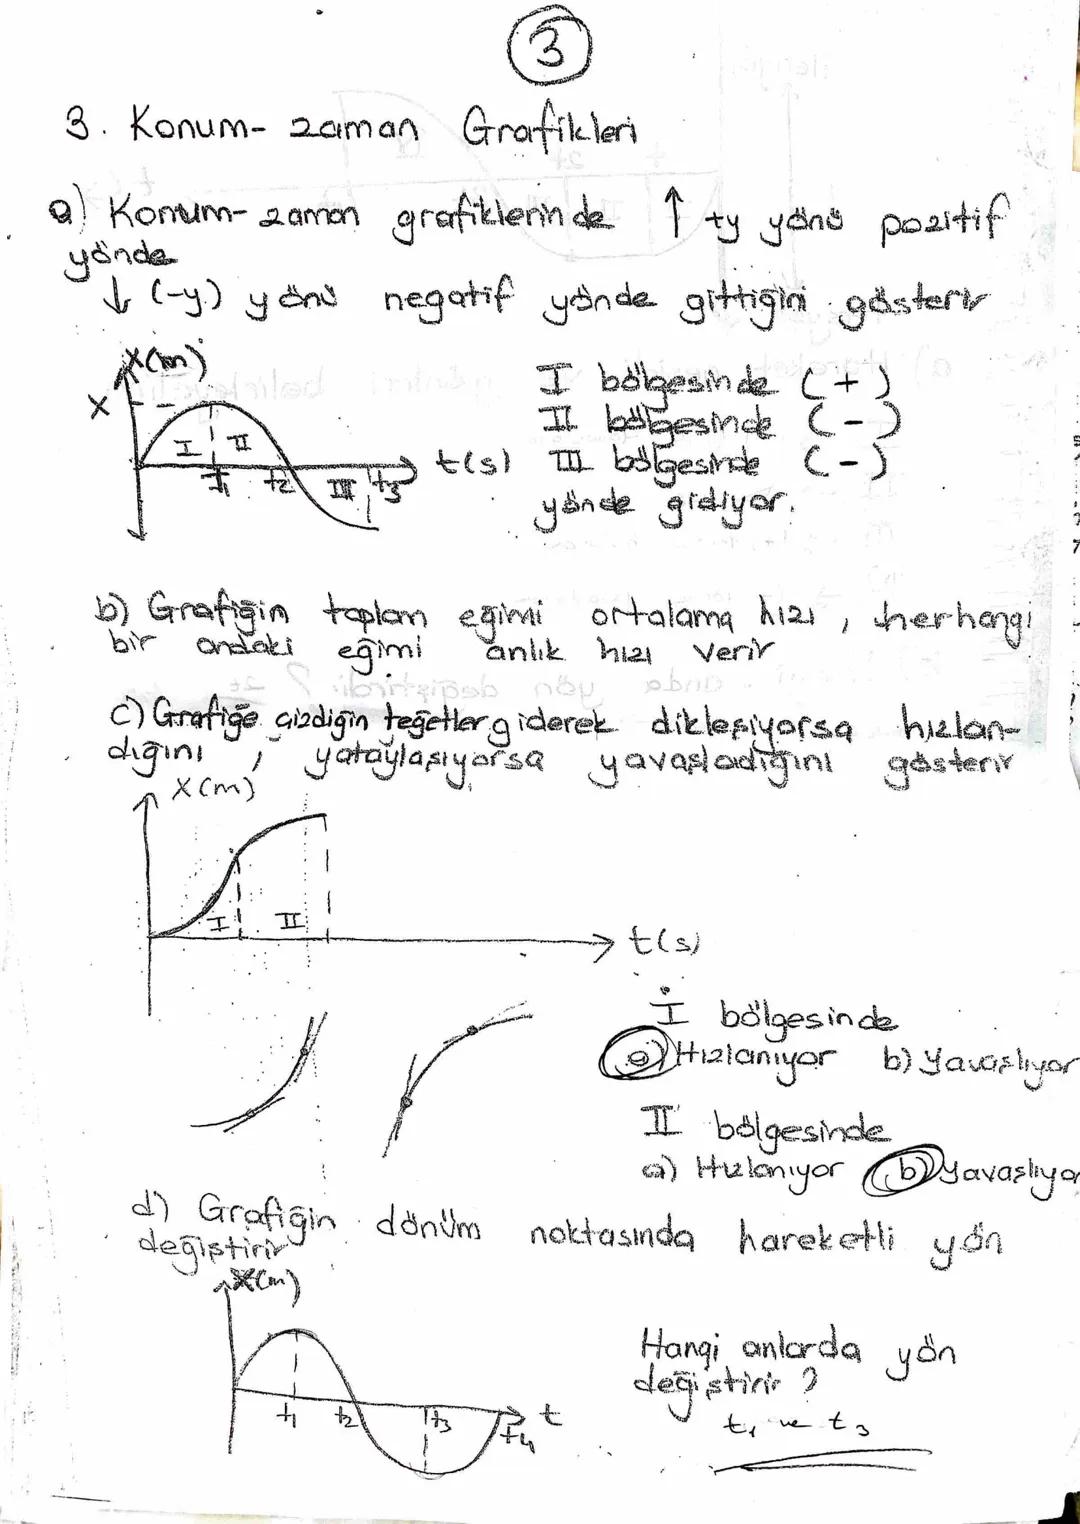 3
3. Konum-zaman Grafikleri
a) Konum-zaman grafiklerinde ↑ +y yönü pozitif
yönde
↓ (-y) yönü negatif yönde gittiğini gösterir
X(m)
X
I II
t1 t2 III t3
t(s)
I bölgesinde (+)
II bölgesinde (-)
III bölgesinde (-)
yönde gidiyor.
b) Grafiğin toplam eğimi ortalama hızı, herhangi
bir andaki eğimi anlık hızı verir
c) Grafiğe çizdiğin teğetler giderek dikleşiyorsa hızlan-
dığını, yataylaşıyorsa yavaşladığını gösterir
X(m)
I II
t(s)
I bölgesinde
a) Hızlanıyor b) Yavaşlıyor
II bölgesinde
a) Hızlanıyor b) Yavaşlıyor
d) Grafiğin dönüm noktasında hareketli yön
değiştirir
X(m)
t1 t2 t3 t4 t
Hangi anlarda yön
değiştirir?
t1 ve t3